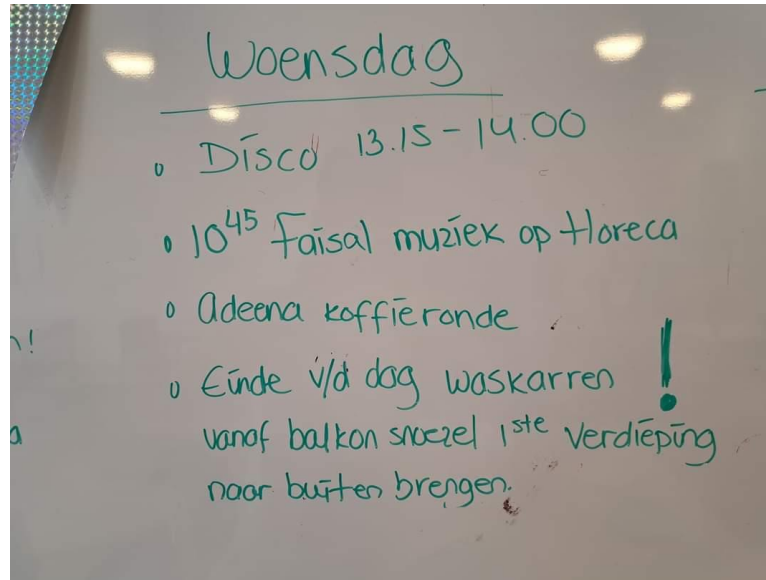 Woensdag
o Disco 13.15 - 14.00
o 10⁴⁵ Faisal muziek op Horeca
o Adeena koffieronde
o Einde v/d dag waskarren !
vanaf balkon snoezel 1ste verdieping
naar buiten brengen.
n!
a